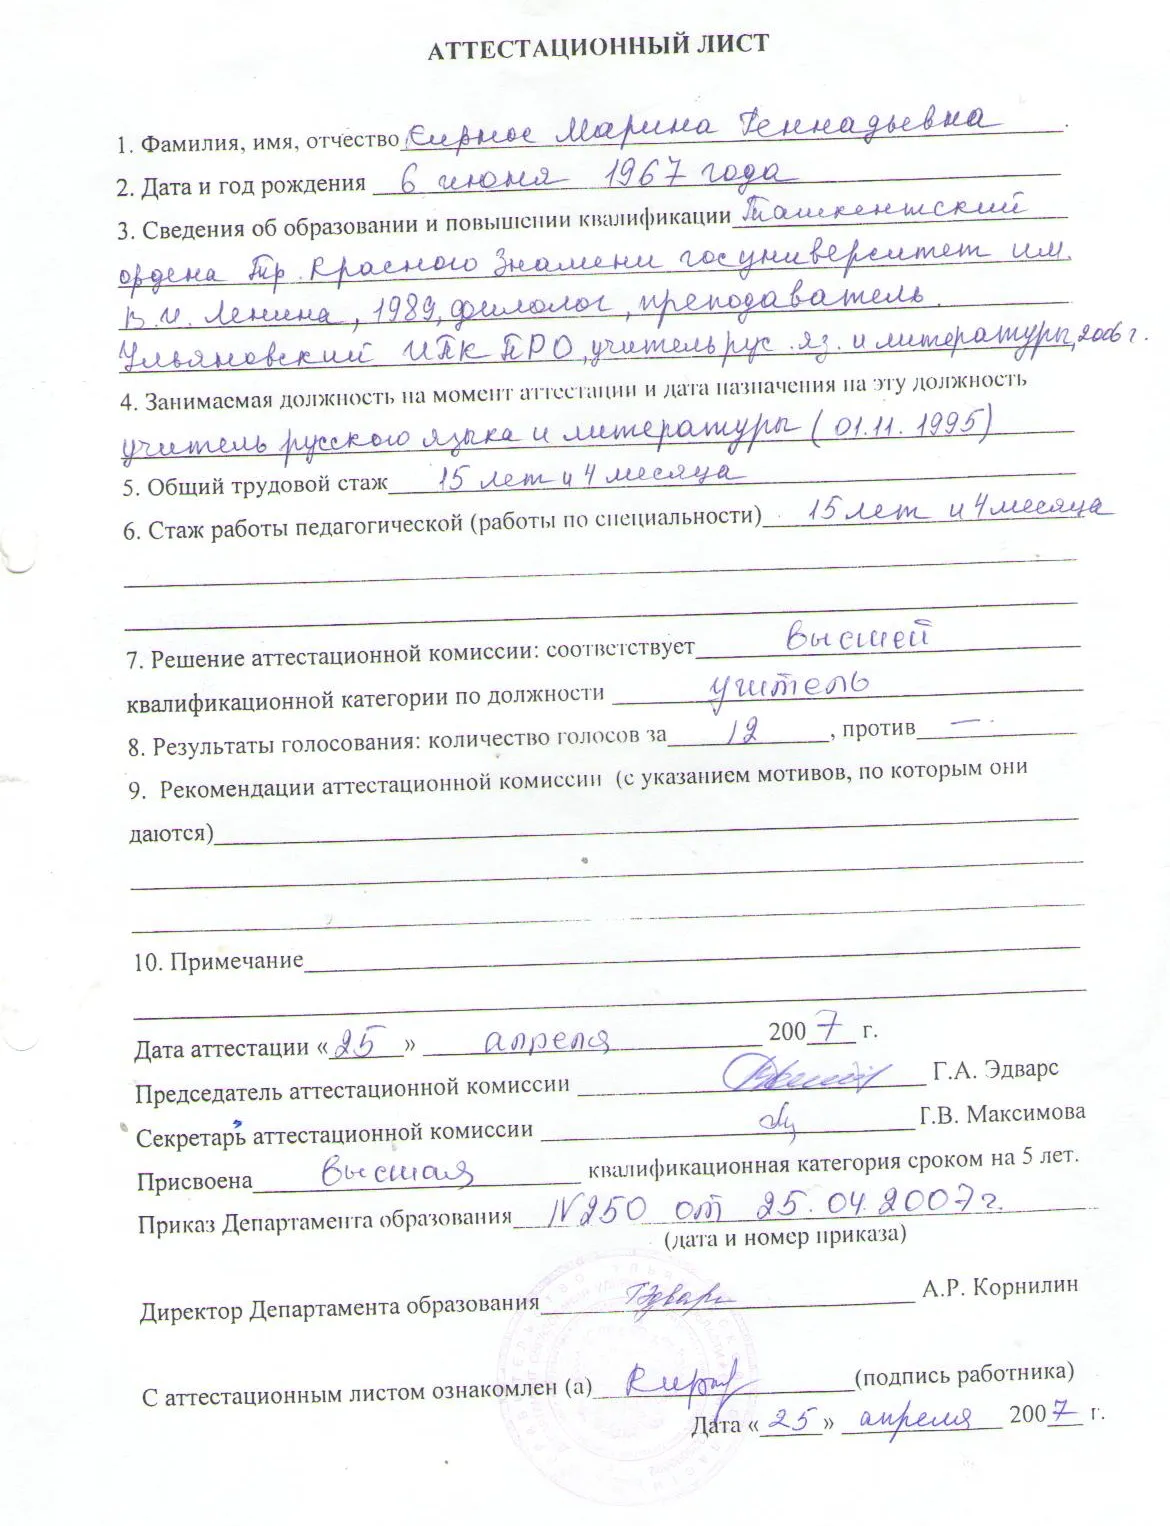 АТТЕСТАЦИОННЫЙ ЛИСТ
1. Фамилия, имя, отчество Марина Геннадьевна
2. Дата и год рождения 6 июня 1967 года
3. Сведения об образовании и повышении квалификации Ташкентский
ордена Тр. Красного Знамени госуниверситет им.
В.И. Ленина, 1989, филолог, преподаватель.
Ульяновский ИПК ПРО, учитель рус. яз. и литературы, 2006 г.
4. Занимаемая должность на момент аттестации и дата назначения на эту должность
учитель русского языка и литературы (01.11.1995)
5. Общий трудовой стаж 15 лет и 4 месяца
6. Стаж работы педагогической (работы по специальности) 15 лет и 4 месяца
7. Решение аттестационной комиссии: соответствует высшей
квалификационной категории по должности учитель
8. Результаты голосования: количество голосов за 12, против —
9. Рекомендации аттестационной комиссии (с указанием мотивов, по которым они
даются)
10. Примечание
Дата аттестации «25» апреля 2007 г.
Председатель аттестационной комиссии Г.А. Эдварс
Секретарь аттестационной комиссии Г.В. Максимова
Присвоена высшая квалификационная категория сроком на 5 лет.
Приказ Департамента образования N 250 от 25.04.2007 г.
(дата и номер приказа)
Директор Департамента образования А.Р. Корнилин
С аттестационным листом ознакомлен (а) (подпись работника)
Дата «25» апреля 2007 г.